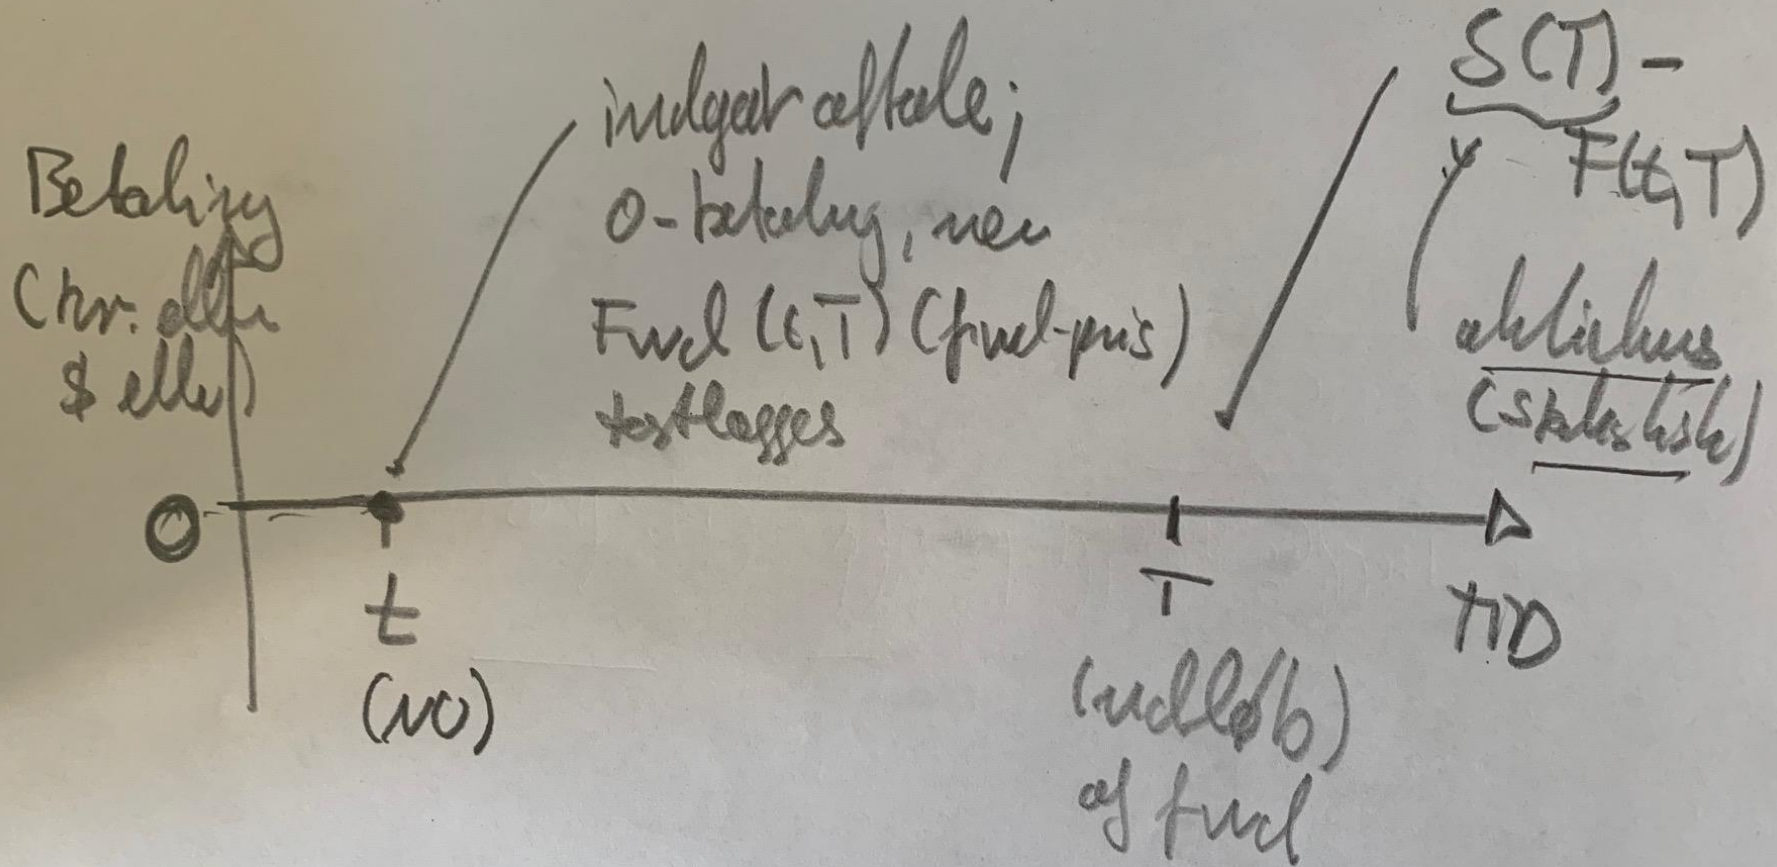 Betaling
(kr. eller
$ eller)
indgår aftale;
0-betaling, men
Fwd (t,T) (fwd-pris)
fastlægges
S(T) -
F(t,T)
aktiekurs
(stokastisk)
0
t
(nu)
T
(udløb)
af fwd
TID